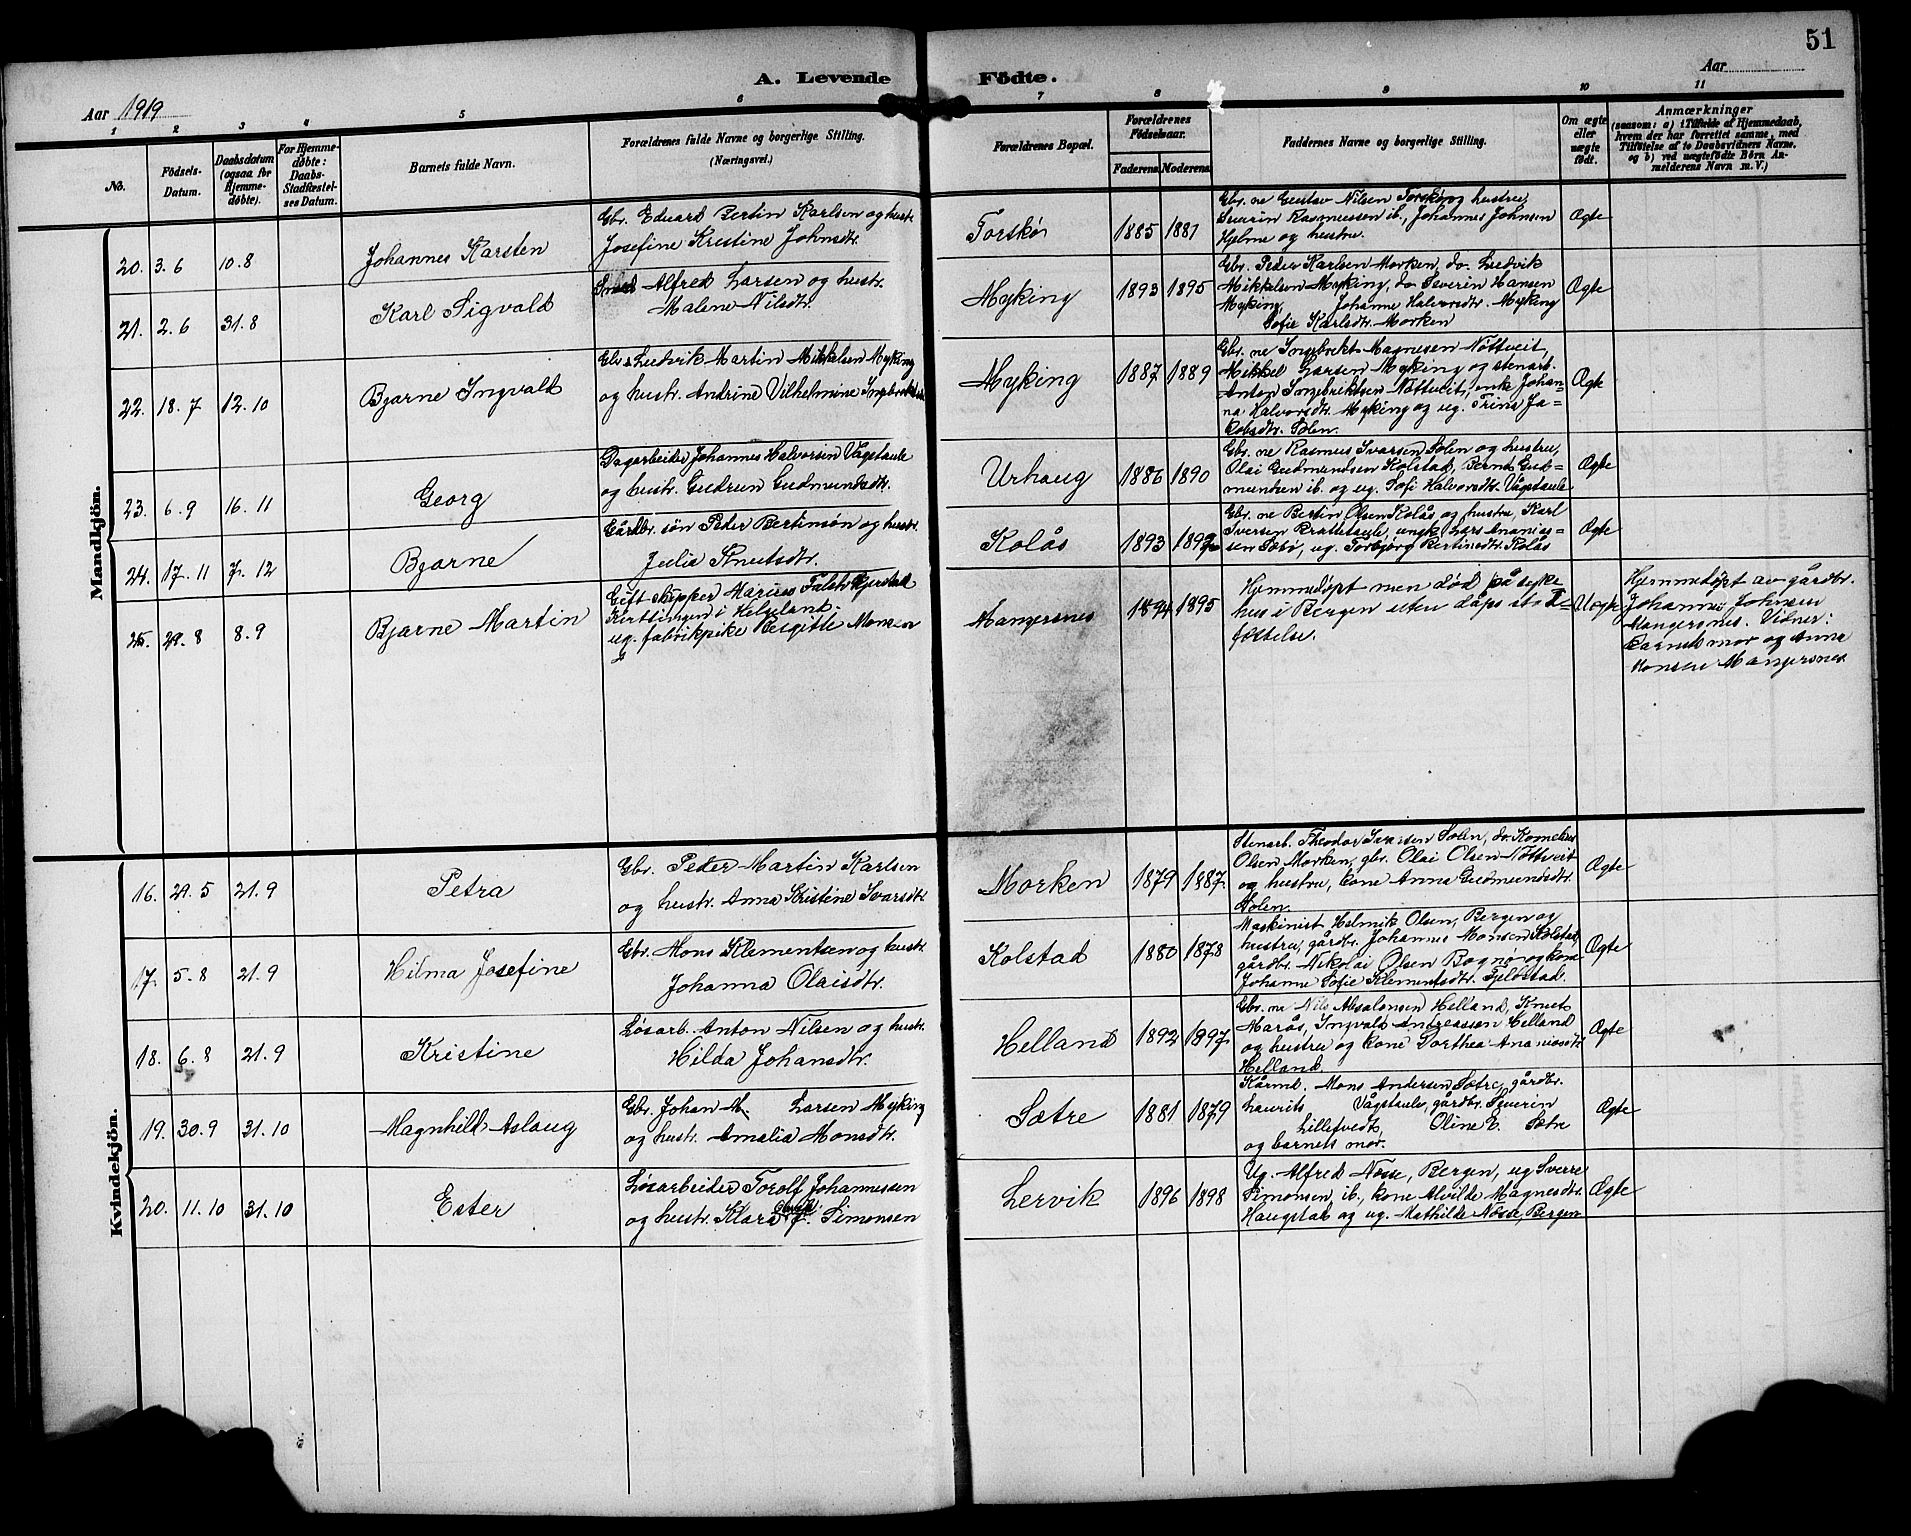 51
A. Levende Födte.
Aar 1919
Aar
1 2 3 4 5 6 7 8 9 10 11
No.
Födsels-Datum.
Daabsdatum (ogsaa for Hjemme-døbte).
For Hjemme-døbte: Daabs-Stadfæstel-ses Datum.
Barnets fulde Navn.
Forældrenes fulde Navne og borgerlige Stilling.
(Næringsvei.)
Forældrenes Bopæl.
Forældrenes Födselsaar.
Faderens. Moderens.
Faddernes Navne og borgerlige Stilling.
Om ægte eller uægte født.
Anmærkninger
(saasom: a) i Tilfælde af Hjemmedaab,
hvem der har forrettet samme, med
Tilføielse af to Daabsvidners Navne,
og b) ved uægtefødte Börn An-
melderens Navn m. V.)
Mandkjön.
20. 3.6 10.8
Johannes Karsten
Gbr. Eduard Bertin Karlsen og hustr.
Josefine Kristine Johnsdtr.
Torskø
1885 1881
Gbr. ne Gustav Nilsen Torskø og hustru,
Severin Rasmussen ib., Johannes Johnsen
Hjelme og hustru.
Ægte
21. 2.6 31.8
Karl Sigvald
Alfred Larsen og hustr.
Malene Nilsdtr.
Myking
1893 1895
Gbr. Peder Karlsen Morken, do. Ludvik
Mikkelsen Myking, do Severin Hansen
Myking, Johanne Halvorsdtr. Myking
Sofie Karlsdtr. Morken
Ægte
22. 18.7 12.10
Bjarne Ingvald
Gbr. Ludvik Martin Mikkelsen Myking
og hustr. Andrine Vilhelmine
Myking
1887 1889
Gbr. ne Ingebrikt Magnesen Nøttveit,
Mikkel Larsen Myking og stenarb.
Anton Ingebriktsen Nøttveit, enke Johan-
na Halvorsdtr. Myking og ug. Trina Ja-
kobsdtr. Solen.
Ægte
23. 6.9 16.11
Georg
Dagarbeider Johannes Halvorsen Vågstaule
og hustr. Gudrun Gudmundsdtr.
Urhaug
1886 1890
Gbr. ne Rasmus Ivarsen Solen og hustru,
Olai Gudmundsen Kolstad, Bernt Gud-
mundsen ib. og ug. Sofi Halvorsdtr. Vågstaule
Ægte
24. 17.11 7.12
Bjarne
Gårdbr. søn Peder Bertinsøn og hustr.
Julia Knutsdtr.
Kolås
1893 1892
Gbr. ne Bertin Olsen Kolås og hustru, Karl
Iversen Brattetaule, ungk. Lars Ananias-
sen Sæbø, ug. Torbjørg Bertinsdtr. Kolås
Ægte
25. 29.8 8.9
Bjarne Martin
Gift skipper Marius Falch Bjerstad
i Helgeland.
ug. fabrikpike Birgitte Monsen
Mangersnes
1894 1895
Hjemmedøpt men død på syke-
hus i Bergen uten dåps stad-
fæstelse.
Uægte
Hjemmedøpt av gårdbr.
Johannes Johnsen
Mangersnes. Vidner:
Barnets mor og Anna
Monsen Mangersnes
Kvindekjön.
16. 29.5 21.9
Petra
Gbr. Peder Martin Karlsen
og hustr. Anna Kristine Ivarsdtr.
Morken
1879 1887
Stenarb. Theodor Ivarsen Solen, do. Kornelius
Olsen Morken, gbr. Olai Olsen Nøttveit
og hustru, kone Anna Gudmundsdtr.
Solen.
Ægte
17. 5.8 21.9
Hilma Josefine
Gbr. Mons Klementsen og hustr.
Johanna Olaisdtr.
Kolstad
1880 1878
Maskinist Helmik Olsen, Bergen og
hustru, gårdbr. Johannes Monsen Kolstad,
gårdbr. Nikolai Olsen Bognø og kone
Johanne Sofie Klementsdtr. Fjeldstad.
Ægte
18. 6.8 21.9
Kristine
Løsarb. Anton Nilsen og hustr.
Hilda Johansdtr.
Helland
1892 1897
Gbr. ne Nils Absalonsen Helland, Knut
Marås, Ingvald Andreassen Helland
og hustru og kone Dorthea Ananiasdtr
Helland
Ægte
19. 30.9 31.10
Magnhild Aslaug
Gbr. Johan M. Larsen Myking
og hustr. Amalia Monsdtr.
Sætre
1881 1879
Kårmd. Mons Andersen Sætre, gårdbr.
Laurits Vågstaule, gårdbr. Severin
Lilletvedt, Oline E. Sætre
og barnets mor.
Ægte
20. 11.10 31.10
Ester
Løsarbeider Torolf Johannessen
og hustr. Klara J. Simonsen
Lervik
1896 1898
Ug. Alfred Nesse, Bergen, ug Sverre
Simonsen, ib., kone Alvilde Magnesdtr.
Haugstad og ug. Mathilde Nesse, Bergen
Ægte